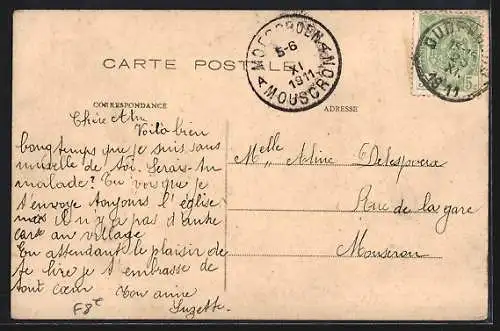 CARTE POSTALE
MOESCROEN A
5-6
XI
1911
A MOUSCRON
1911
5
CORRESPONDANCE
ADRESSE
Chère
Voilà bien
longtemps que je suis sans
nouvelle de toi. Serais-tu
malade? Tu vois que je
t'envoye toujours l'église
mais il n'y a pas d'autre
carte au village
En attendant le plaisir de
te lire je t'embrasse de
tout cœur Ton amie
Suzette
F8e
Melle Aline Delespoux
Rue de la gare
Mouscron